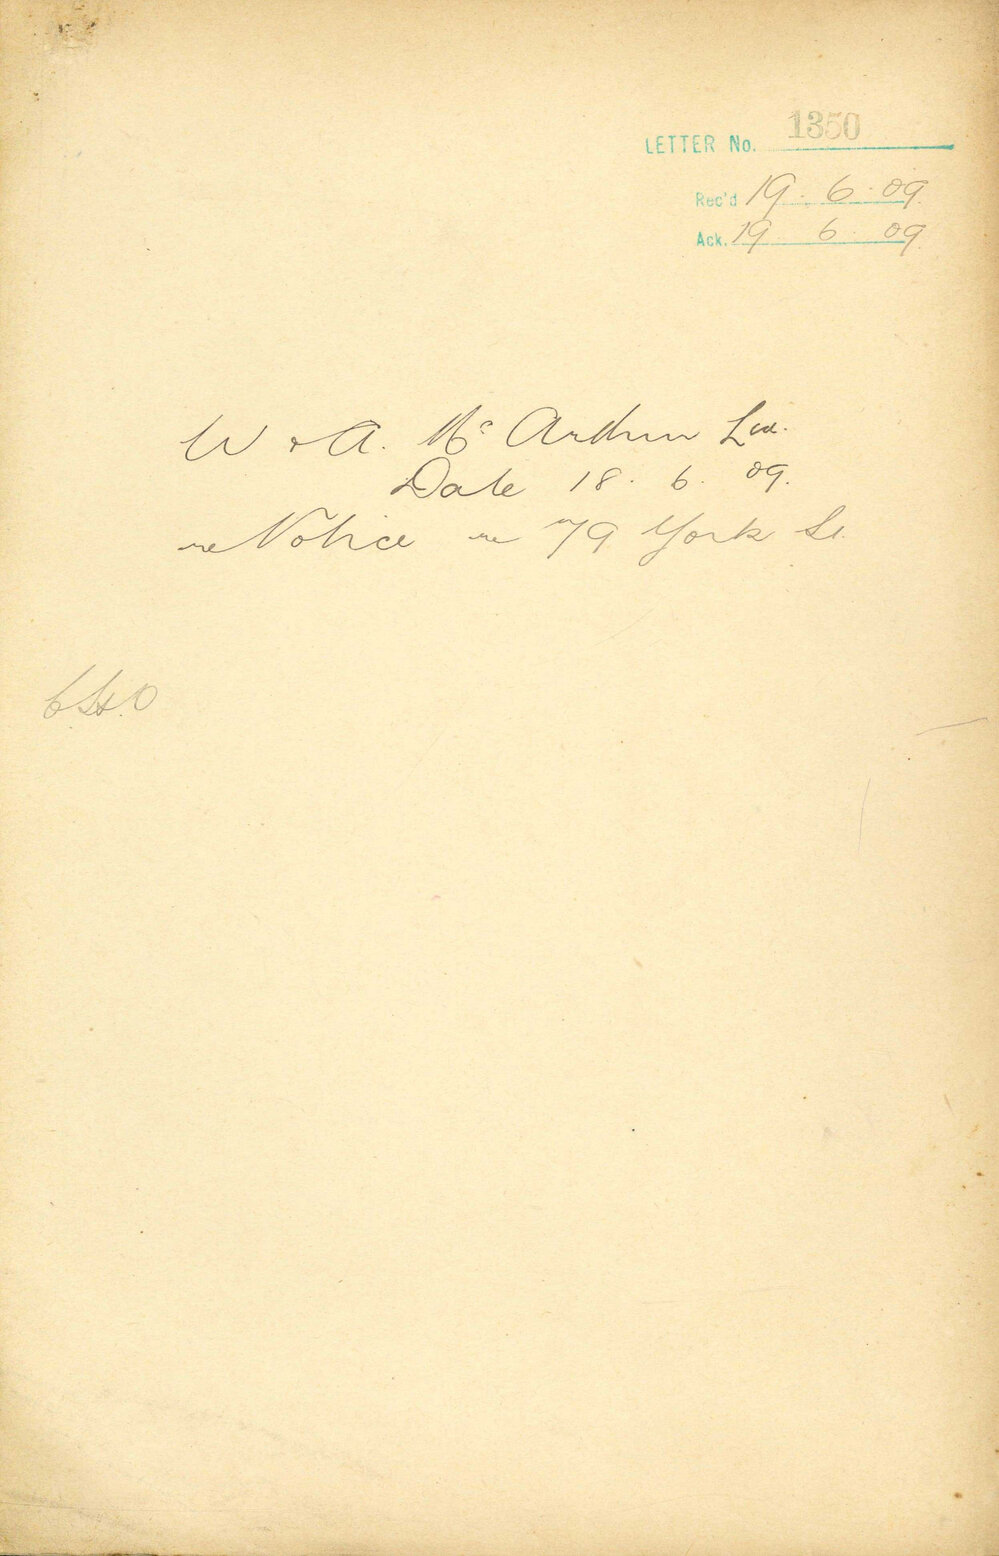 LETTER No. 1350
Rec'd 19. 6. 09.
Ack. 19 6 09.
W & A. Mc Arthur Ltd.
Date 18. 6. 09.
re Notice re 79 York St.